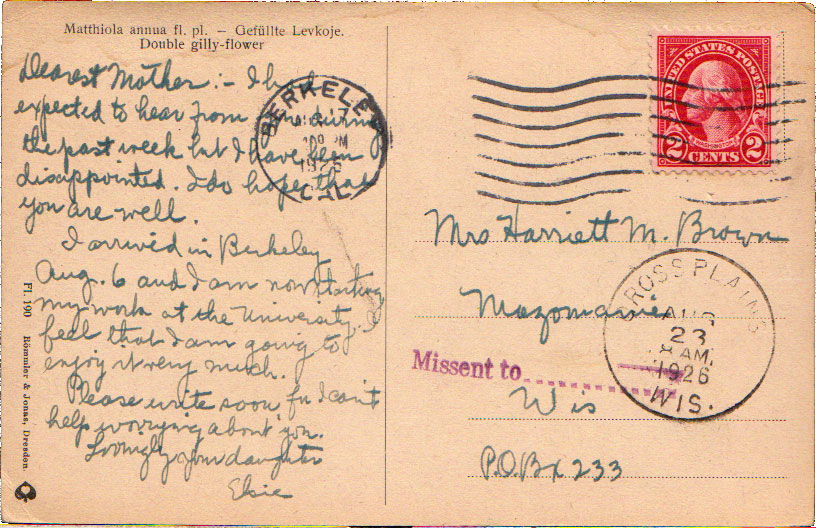 Matthiola annua fl. pl. – Gefüllte Levkoje.
Double gilly-flower
Dearest Mother:- I had
expected to hear from during
the past week but I have been
disappointed. I do hope that
you are well.
I arrived in Berkeley
Aug. 6 and I am now starting
my work at the University. I
feel that I am going to
enjoy it very much.
Please write soon, for I can't
help worrying about you.
Lovingly your daughter
Elsie
Fl. 190 Römmler & Jonas, Dresden.
BERKELEY
PM
CAL
UNITED STATES POSTAGE
2 CENTS 2
Mrs Harriett M. Brown
Mazomanie
Wis
P.O. Bx 233
Missent to
CROSS PLAINS
AUG
23
AM.
1926
WIS.